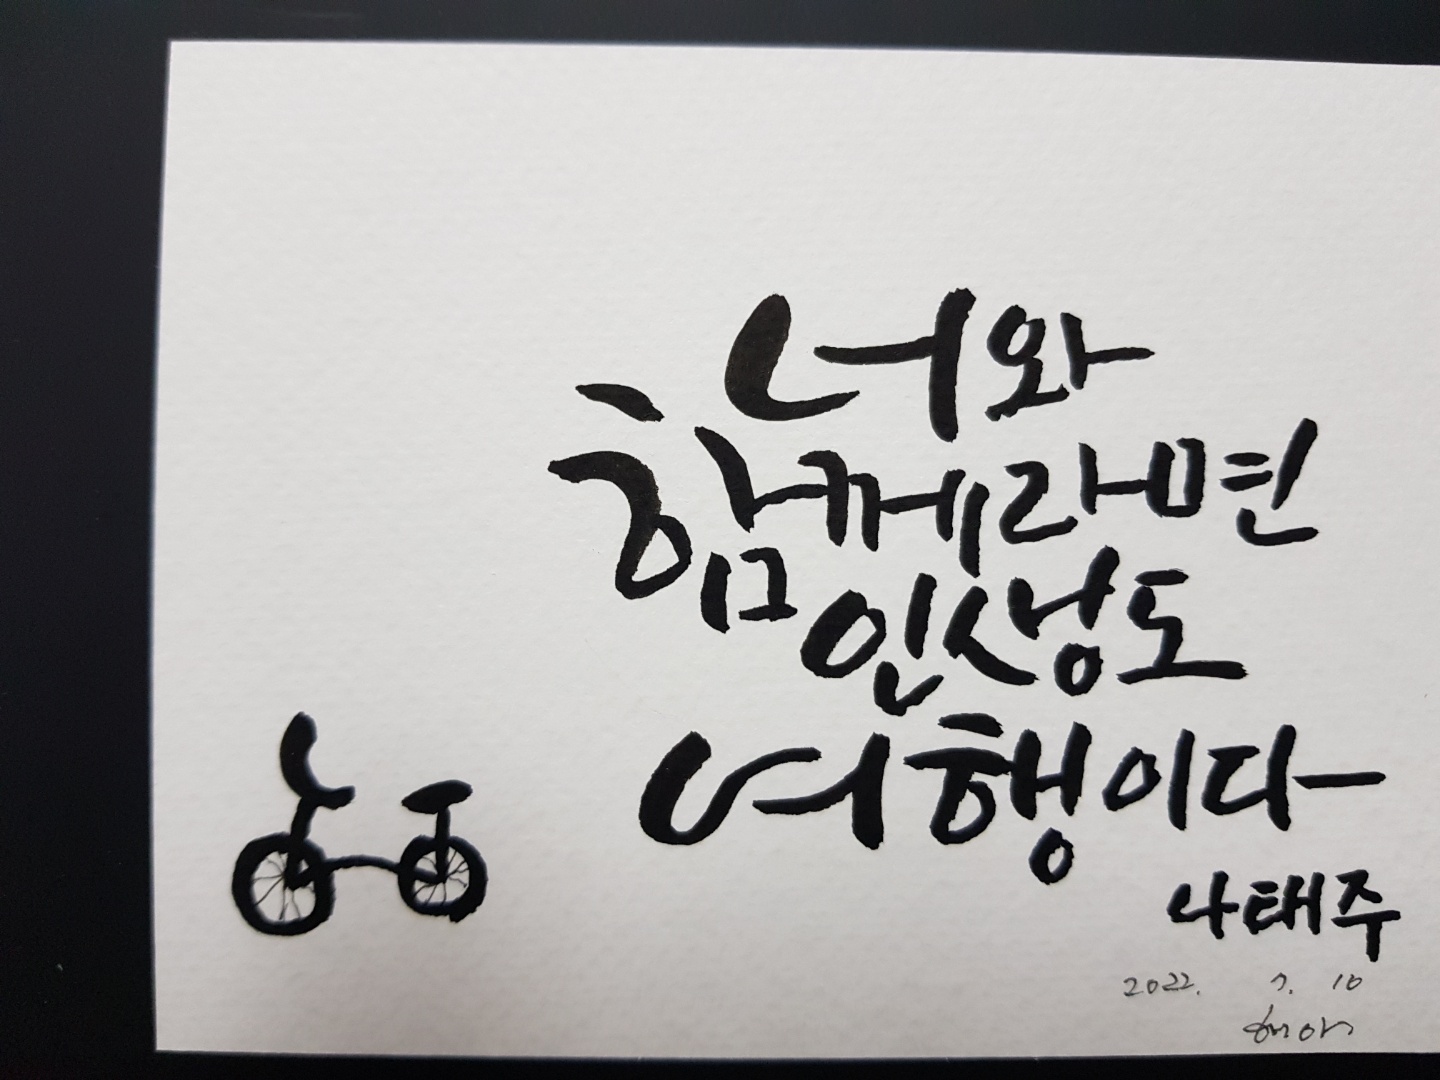 너와
함께라면
인생도
여행이다
나태주
2022. 7. 10